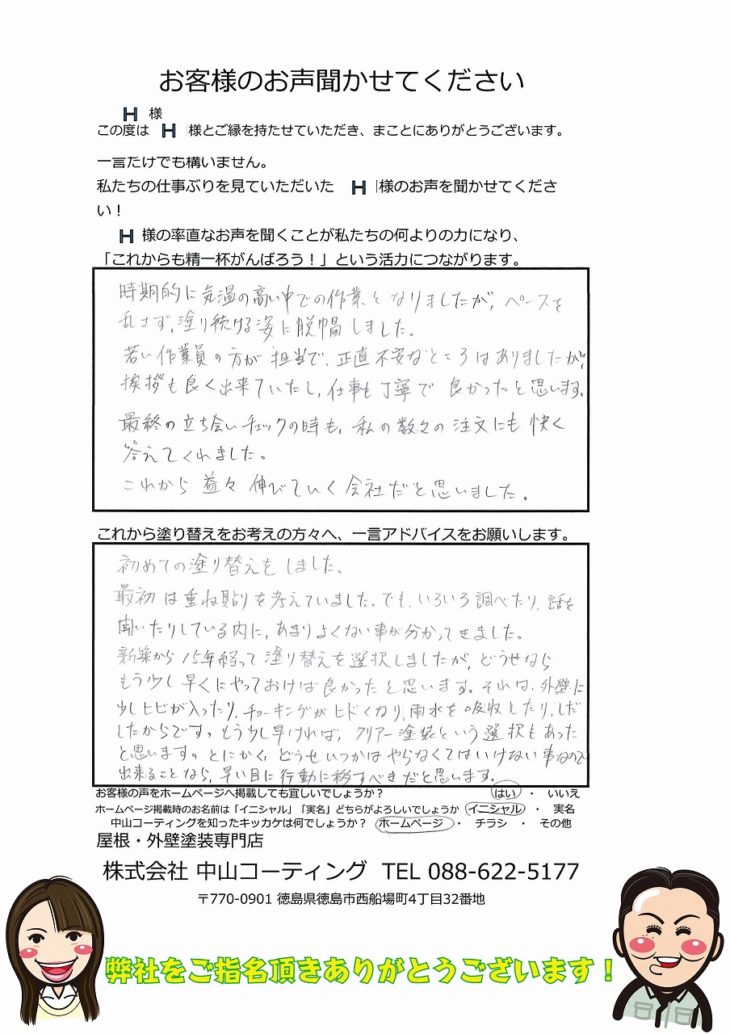 お客様のお声聞かせてください
H 様
この度は H 様とご縁を持たせていただき、まことにありがとうございます。
一言だけでも構いません。
私たちの仕事ぶりを見ていただいた H 様のお声を聞かせてくださ
い！
H 様の率直なお声を聞くことが私たちの何よりの力になり、
「これからも精一杯がんばろう！」という活力につながります。
時期的に気温の高い中での作業となりましたが、ペースを
乱さず、塗り続ける姿に脱帽しました。
若い作業員の方が担当で、正直不安なところはありましたが、
挨拶も良く出来ていたし、仕事も丁寧で良かったと思います。
最終の立ち会いチェックの時も、私の数々の注文にも快く
答えてくれました。
これから益々伸びていく会社だと思いました。
これから塗り替えをお考えの方々へ、一言アドバイスをお願いします。
初めての塗り替えをしました、
最初は重ね貼りを考えていました。でも、いろいろ調べたり、話を
聞いたりしている内に、あまりよくない事が分かってきました。
新築から15年経って塗り替えを選択しましたが、どうせなら
もう少し早くにやっておけば良かったと思います。それは、外壁に
少しヒビが入ったり、チョーキングがヒドくなり、雨水を吸収したりしだ
したからです。もう少し早ければ、クリアー塗装という選択もあった
と思います。とにかく、どうせいつかはやらなくてはいけない事なので
出来ることなら、早い目に行動に移すべきだと思います。
お客様の声をホームページへ掲載しても宜しいでしょうか？ はい ・ いいえ
ホームページ掲載時のお名前は「イニシャル」「実名」どちらがよろしいでしょうか イニシャル ・ 実名
中山コーティングを知ったキッカケは何でしょうか？ ホームページ ・ チラシ ・ その他
屋根・外壁塗装専門店
株式会社 中山コーティング TEL 088-622-5177
〒770-0901 徳島県徳島市西船場町4丁目32番地
弊社をご指名頂きありがとうございます！